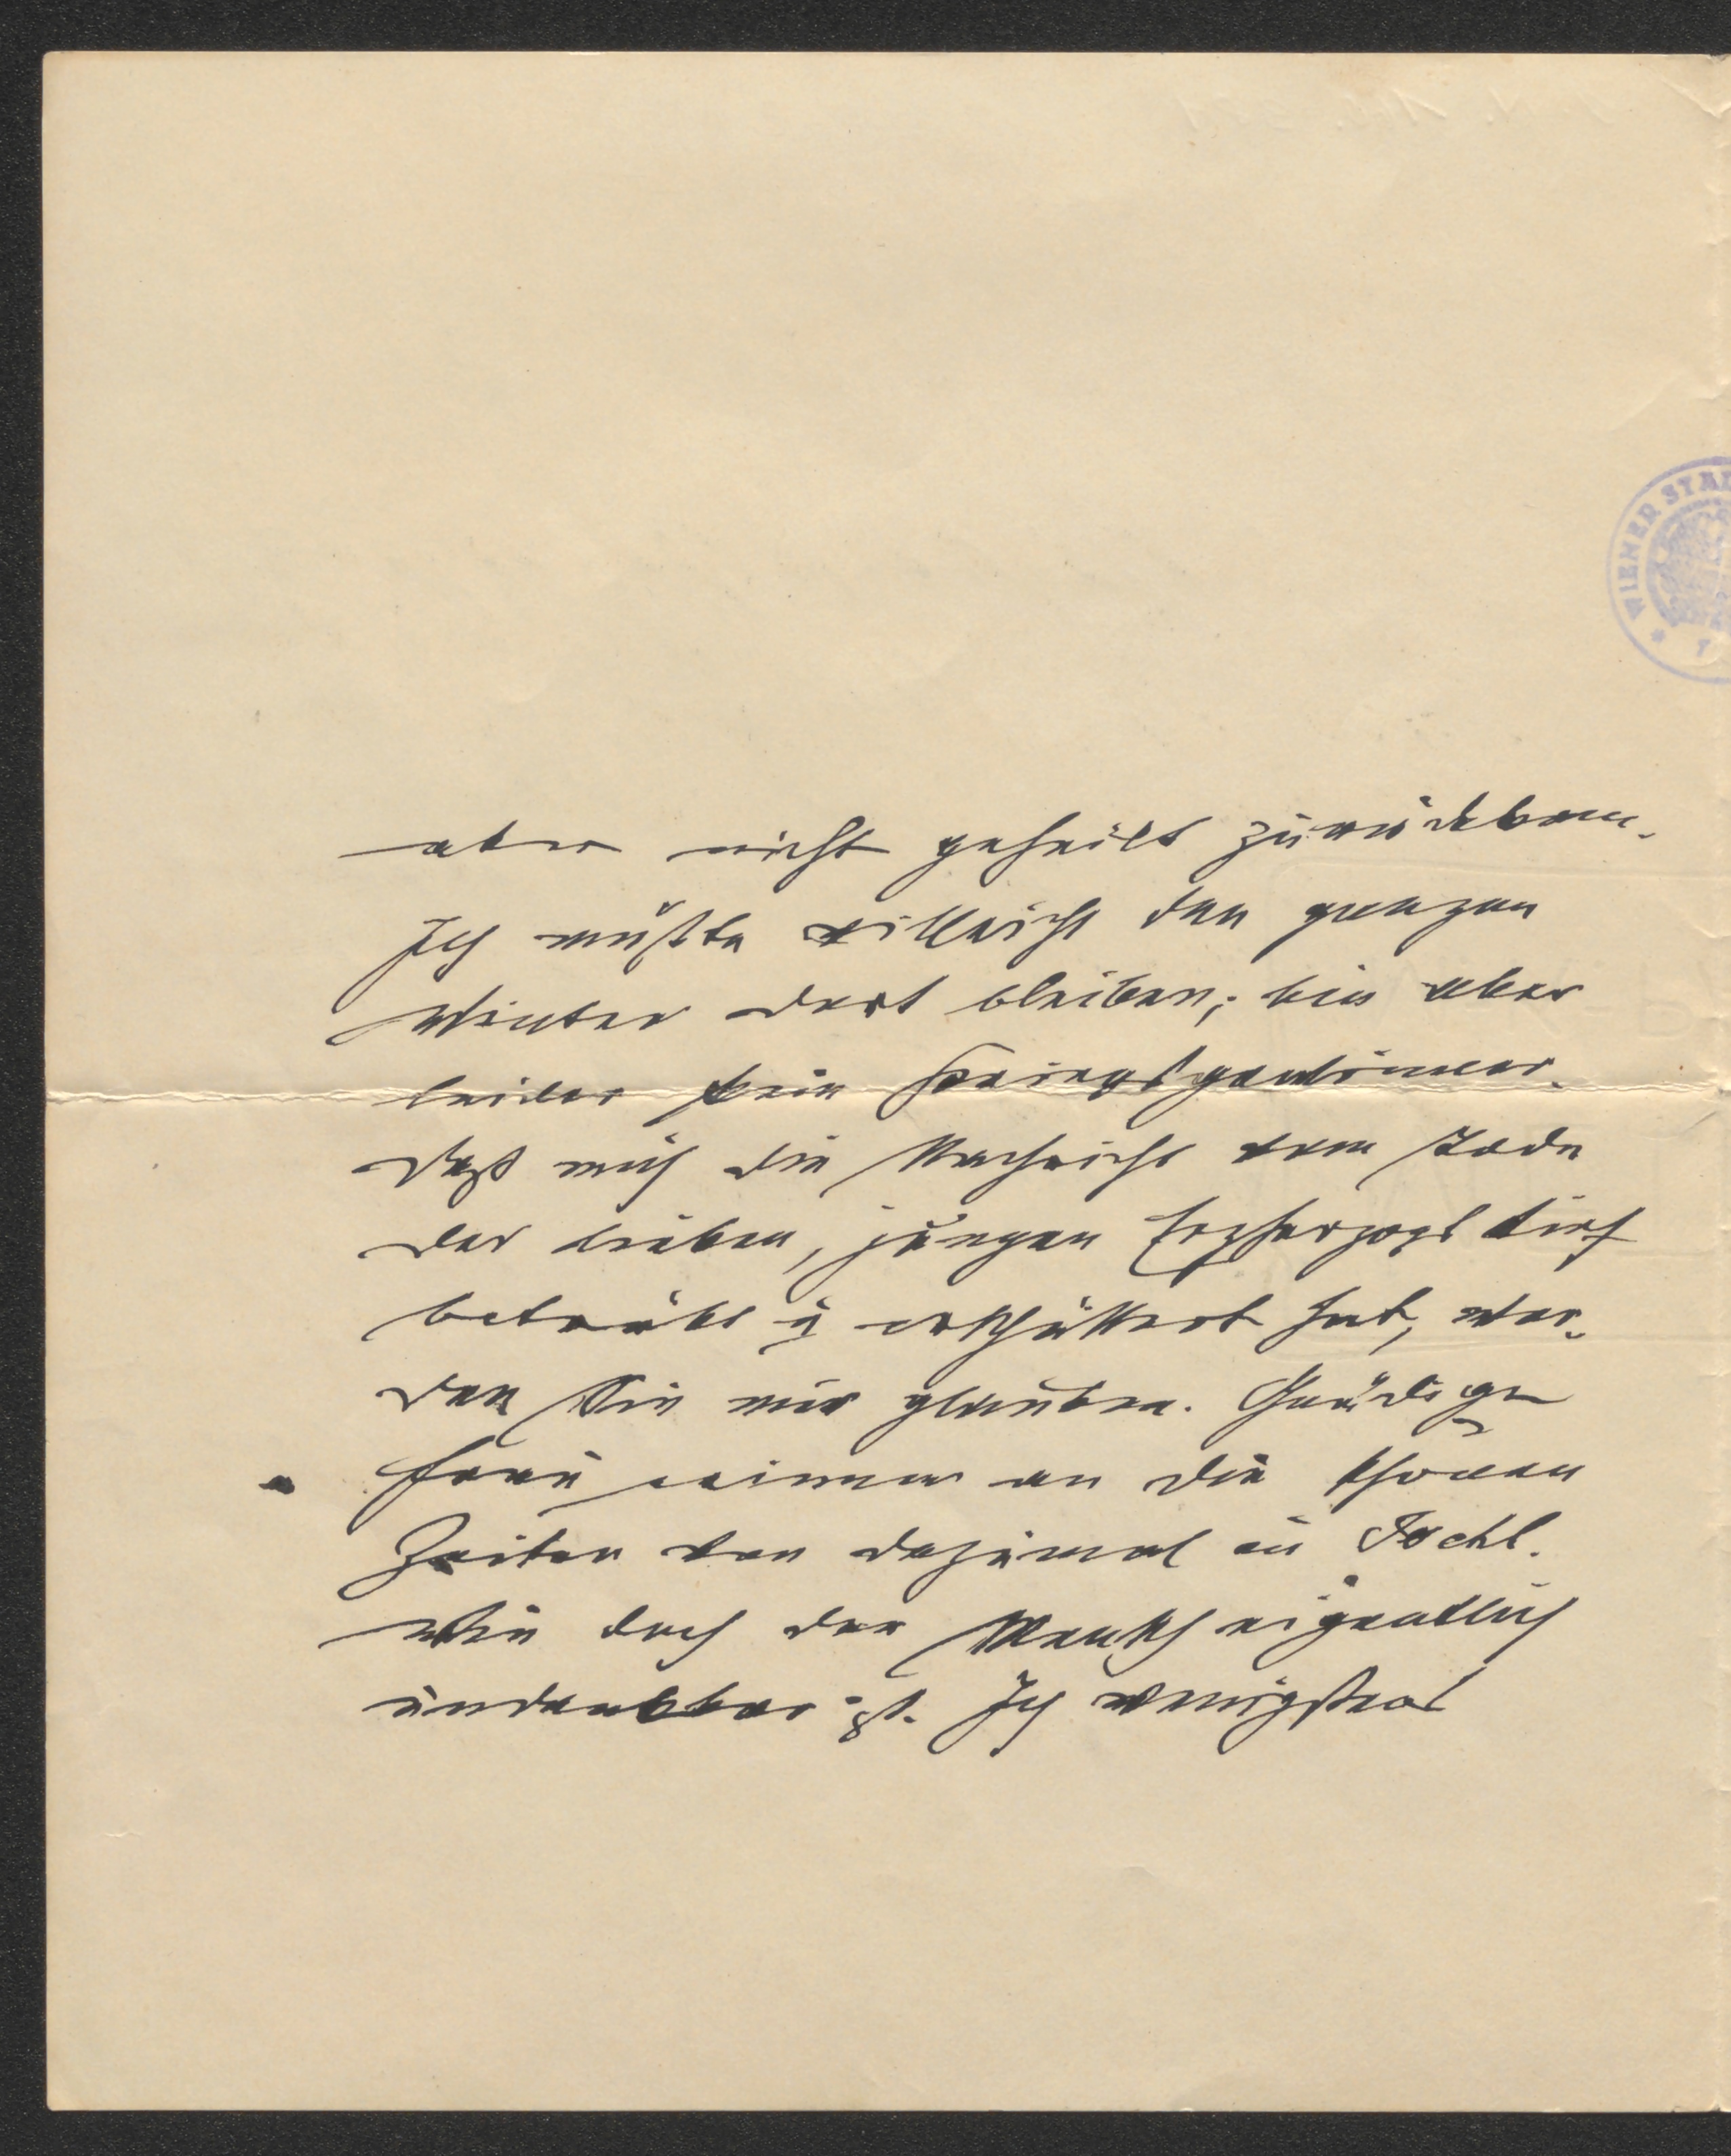 aber nicht geheilt zurückkam.
Ich müßte villeicht den ganzen
Winter dort bleiben; bin aber
leider kein Kriegsgewinner.
Daß mich die Nachricht vom Tode
des lieben, jungen Erzherzogs tief
betrübt u erschüttert hat, wer-
den Sie mir glauben. Gnädige
Frau erinnern an die schönen
Zeiten von dazumal in Ischl.
Wie doch der Mensch eigentlich
undankbar ist. Ich wenigstens
WIENER STAD